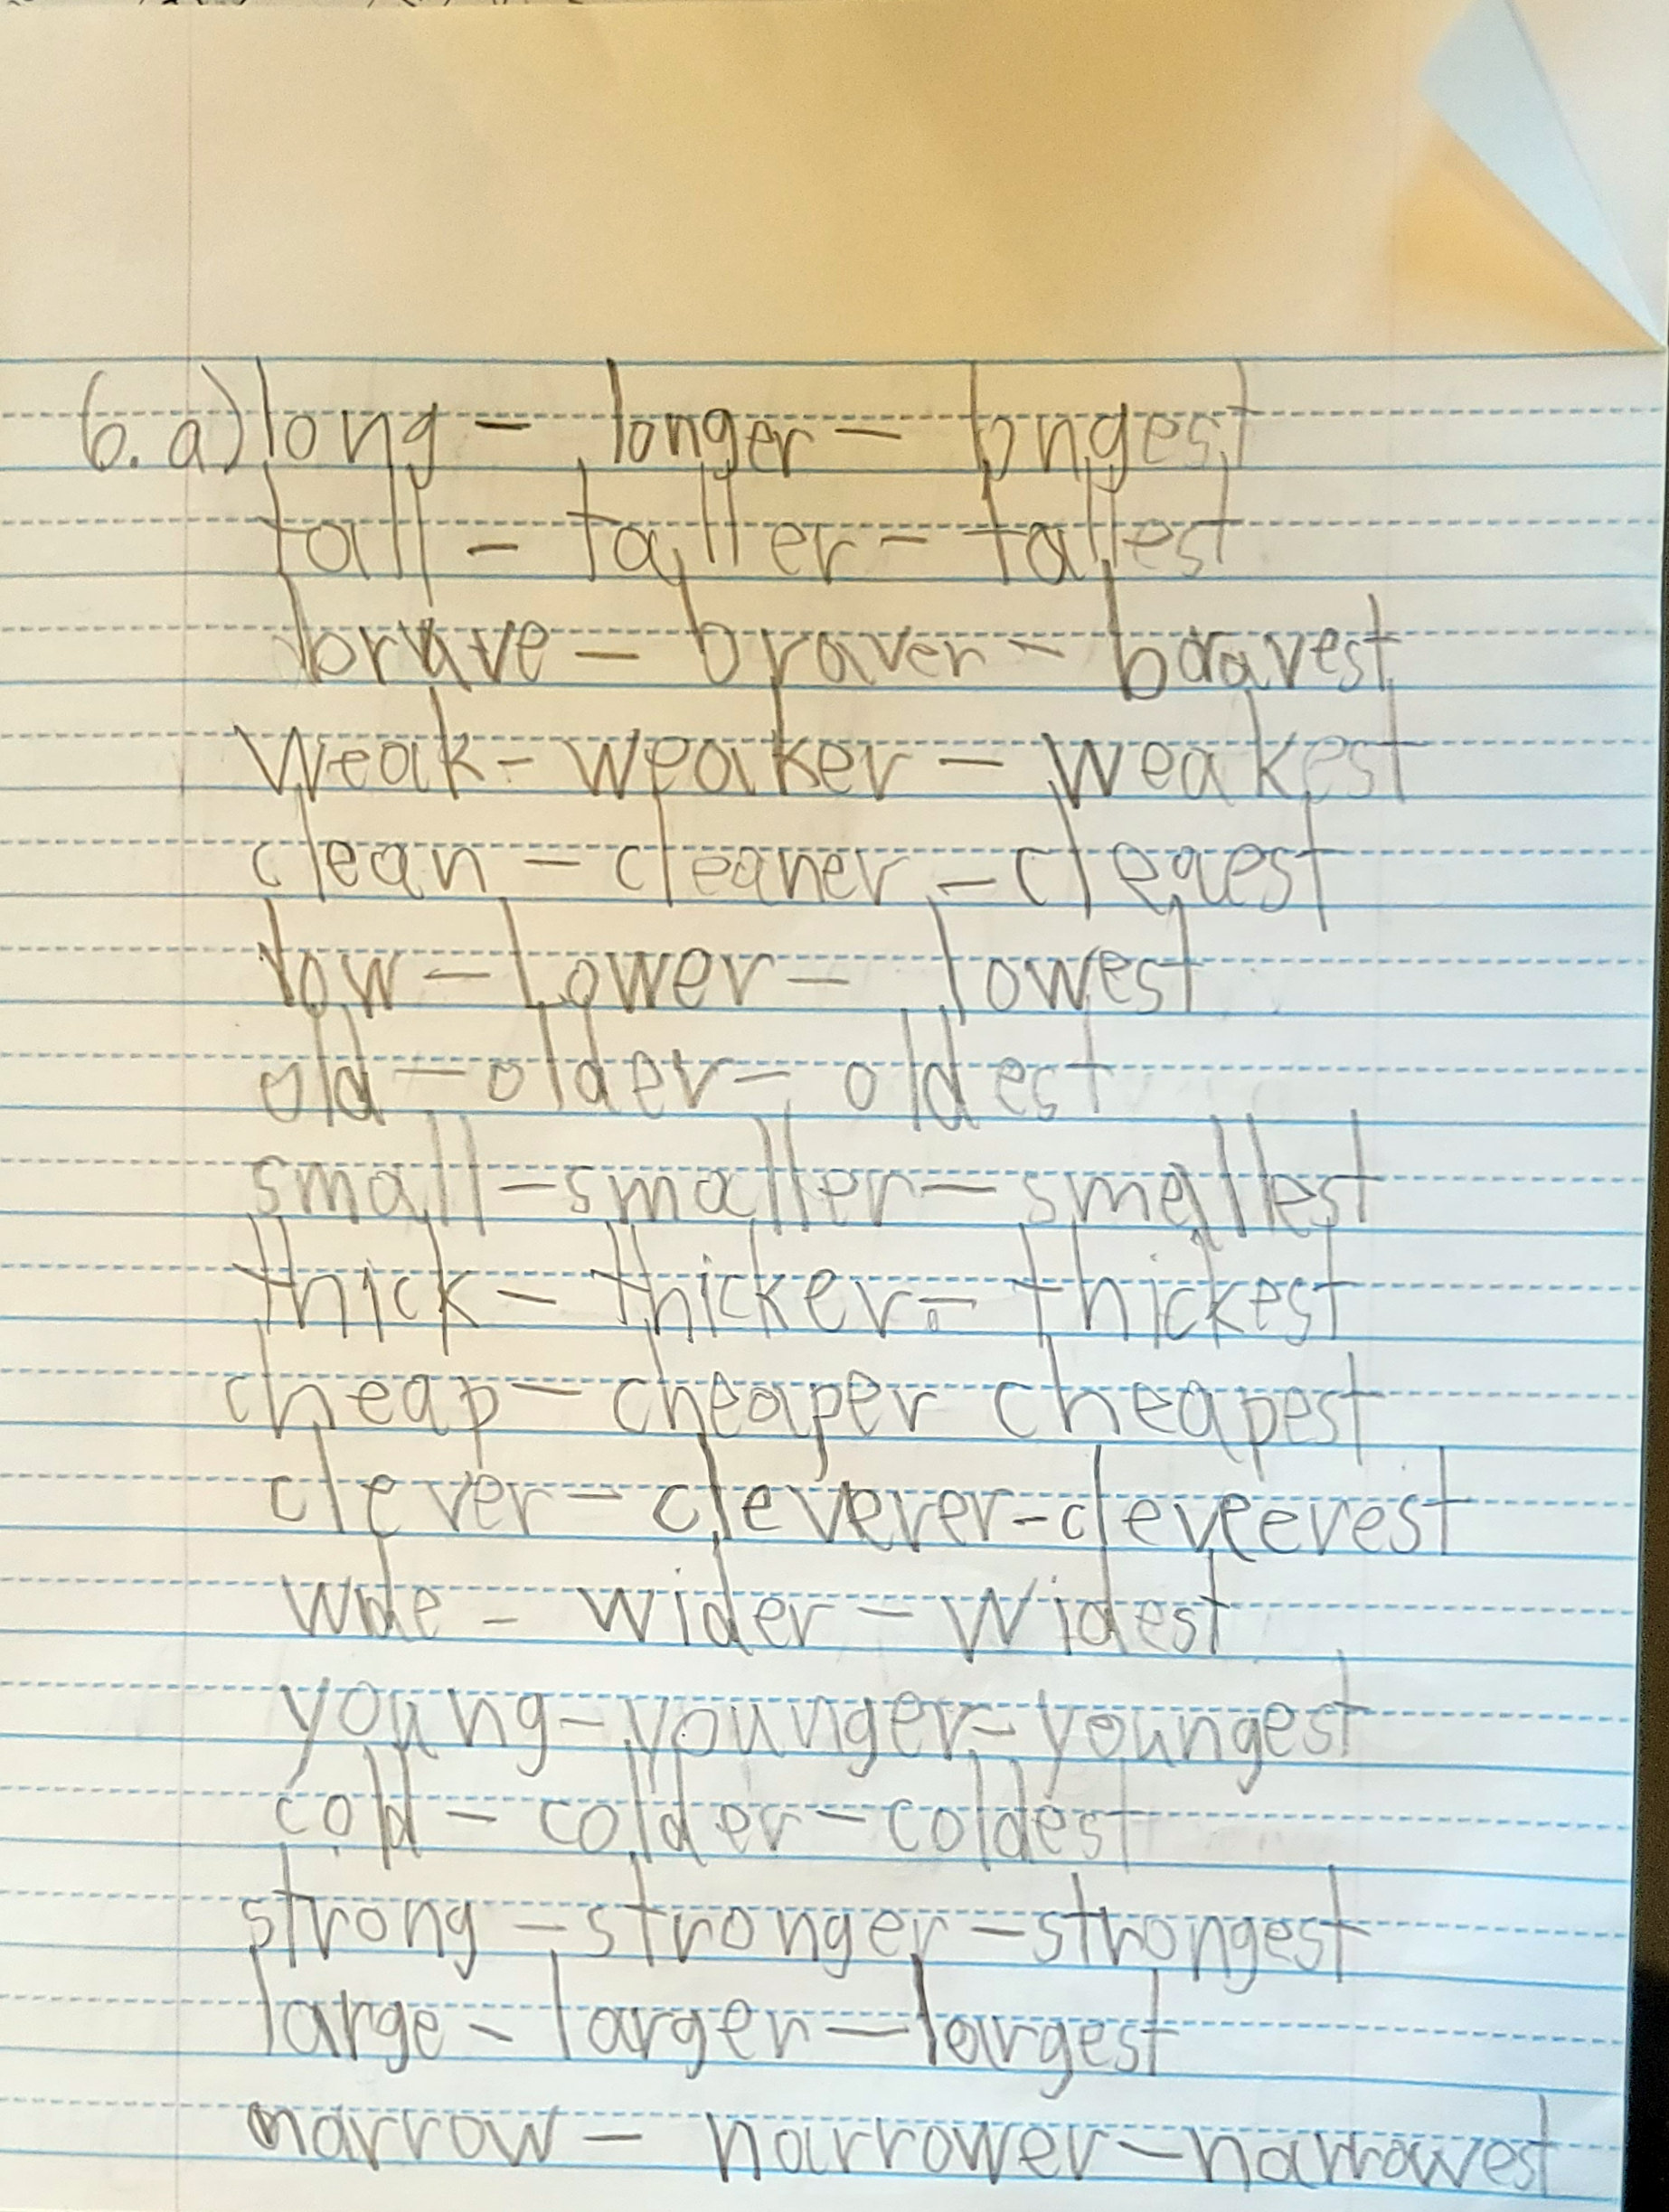 6. a) long - longer - longest
tall - taller - tallest
brave - braver - bravest
weak - weaker - weakest
clean - cleaner - cleaest
low - Lower - lowest
old - older - oldest
small - smaller - smallest
thick - thicker - thickest
cheap - cheaper cheapest
clever - cleverer - cleveerest
wide - wider - widest
young - younger - youngest
cold - colder - coldest
strong - stronger - strongest
large - larger - largest
narrow - narrower - narrowest